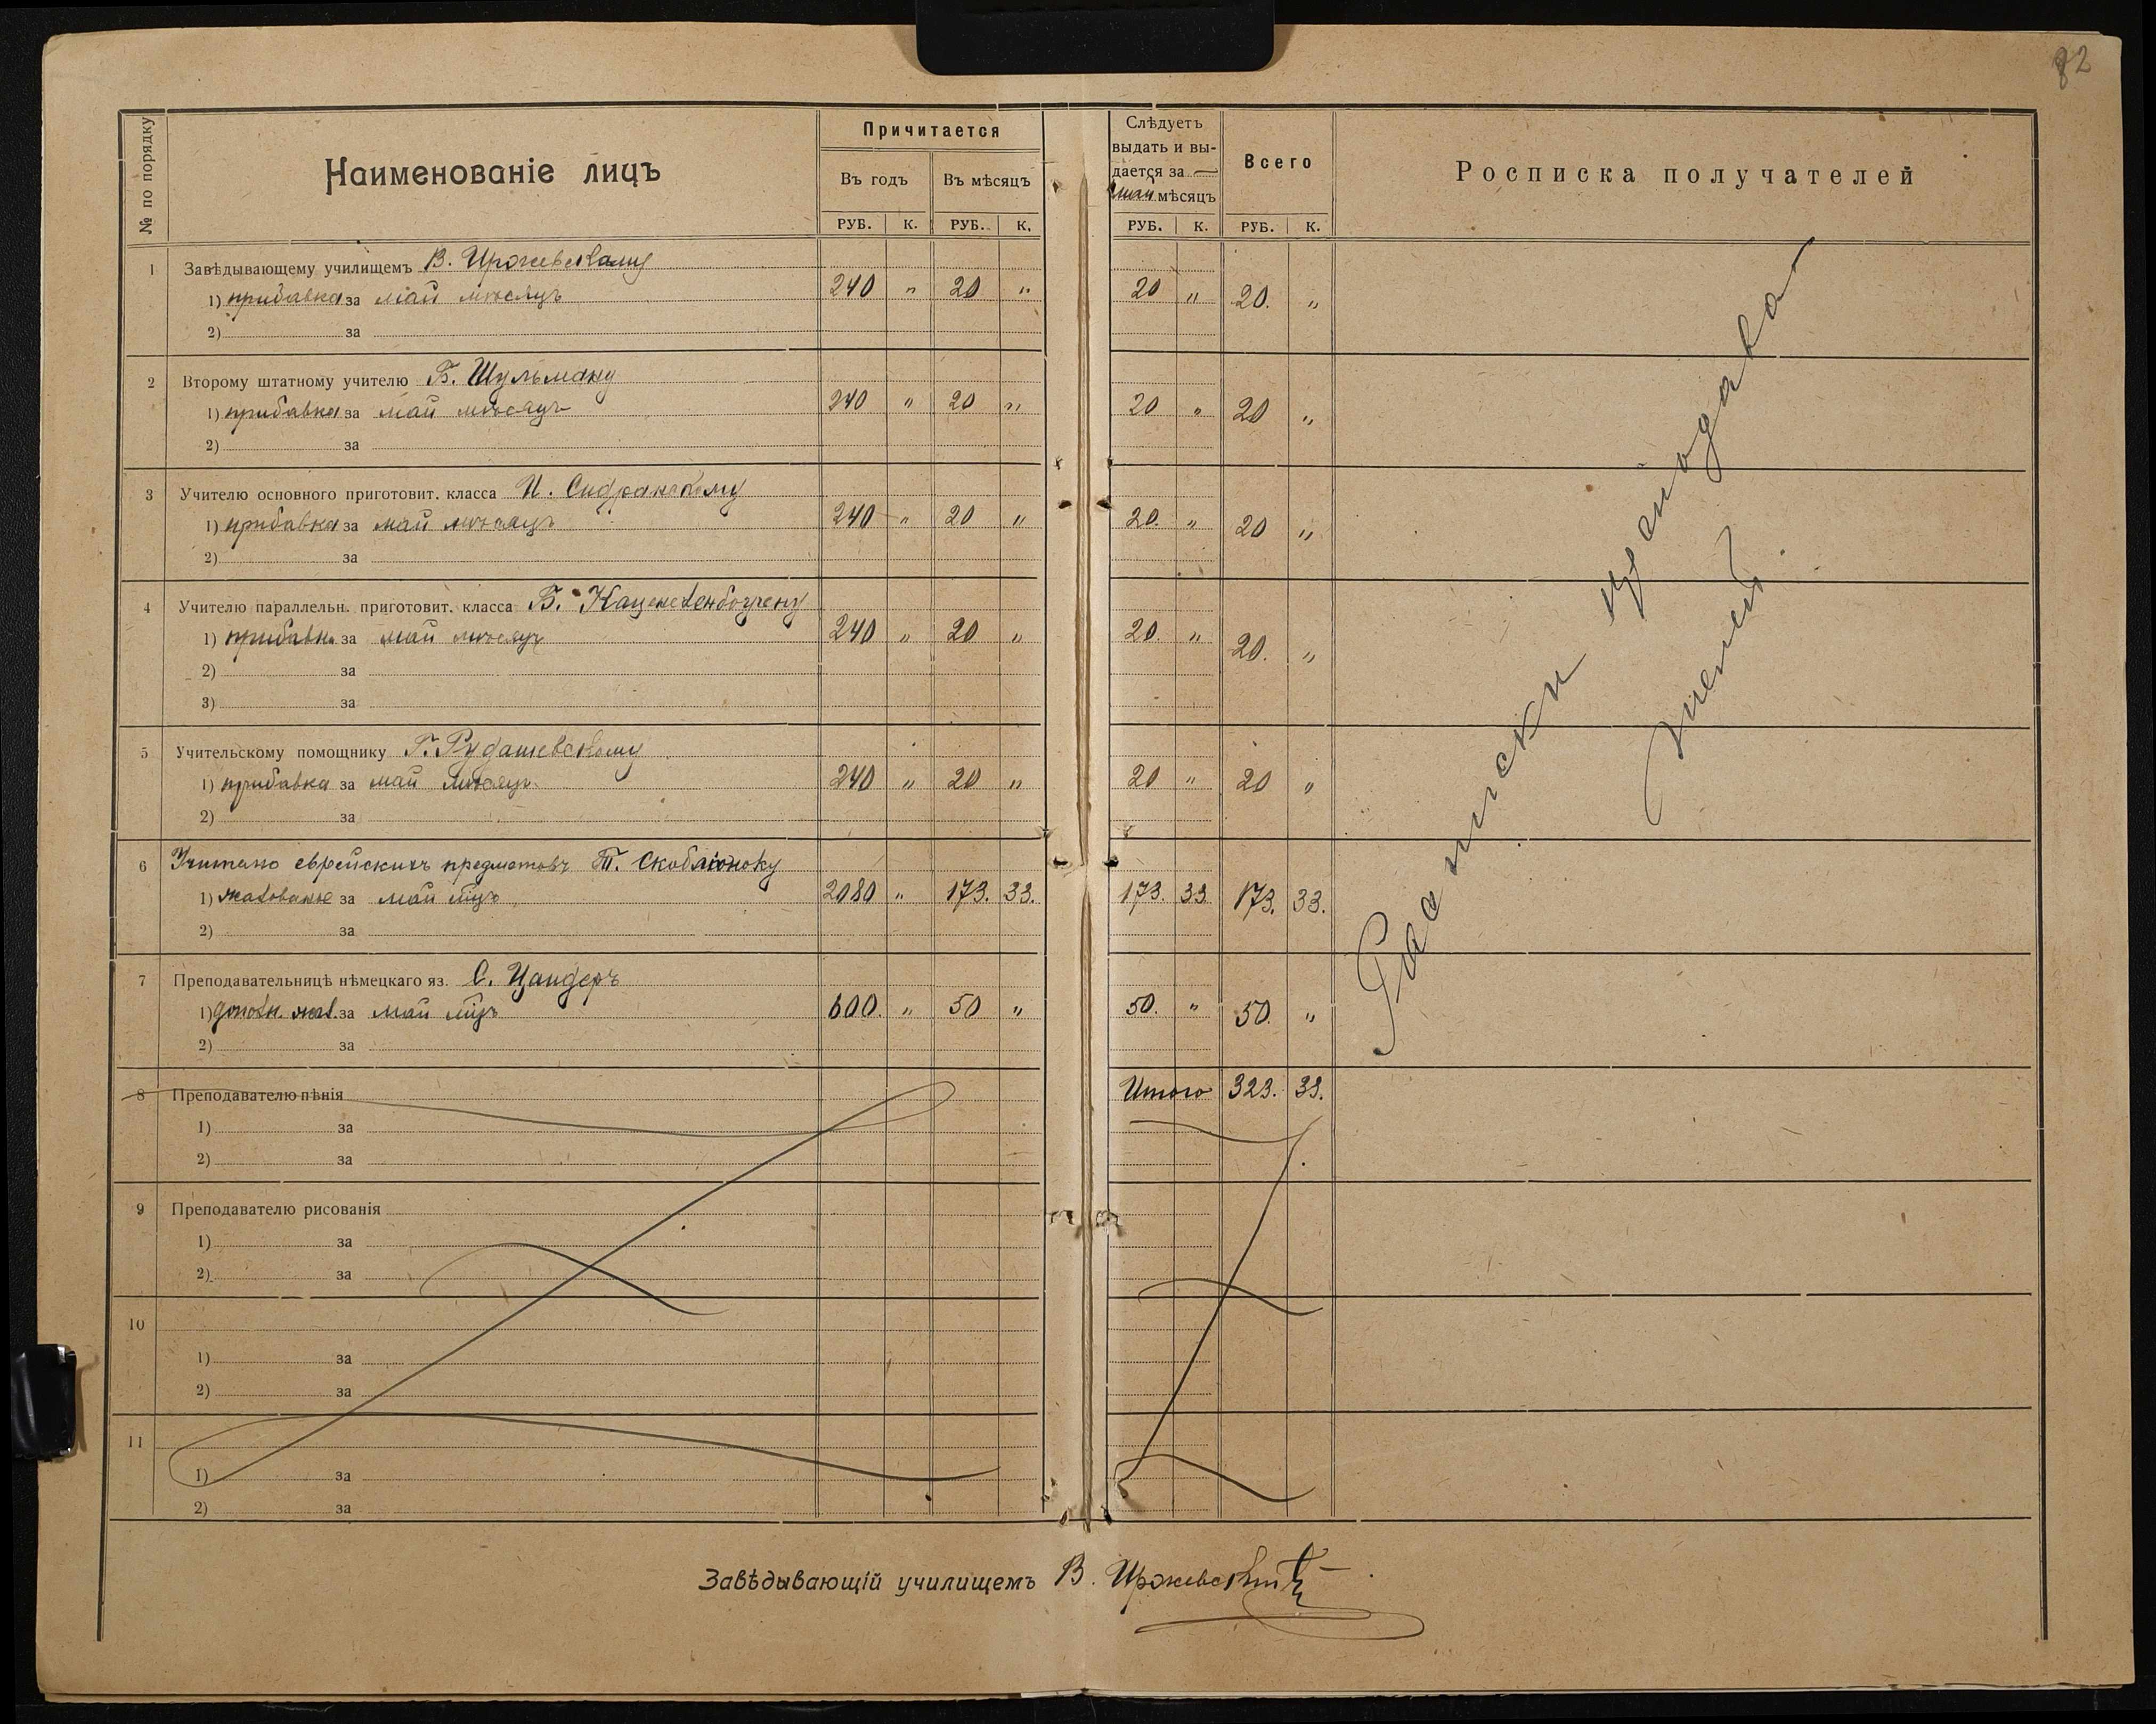 82
№ по порядку
Наименованіе лицъ
Причитается
Въ годъ
Въ мѣсяцъ
РУБ. К. РУБ. К.
Слѣдуетъ
выдать и вы-
дается за
май мѣсяцъ
РУБ. К.
Всего
РУБ. К.
Росписка получателей
1 Завѣдывающему училищемъ В. Иржевскому
1) прибавка за май мѣсяцъ 240 " 20 " 20 " 20. "
2) за
2 Второму штатному учителю Б. Шульману
1) прибавка за май мѣсяцъ 240 " 20 " 20 " 20 "
2) за
3 Учителю основного приготовит. класса И. Сидранскому
1) прибавка за май мѣсяцъ 240 " 20 " 20. " 20 "
2) за
4 Учителю параллельн. приготовит. класса Б. Каценеленбогену
1) прибавка за май мѣсяцъ 240 " 20 " 20. " 20. "
2) за
3) за
5 Учительскому помощнику Г. Рудашевскому
1) прибавка за май мѣсяцъ 240 " 20 " 20 " 20 "
2) за
6 Учителю еврейскихъ предметовъ Т. Скоблionоку
1) жалованье за май мѣсцъ 2080 " 173. 33. 173. 33 173. 33.
2) за
7 Преподавательницѣ нѣмецкаго яз. С. Цандеръ
1) дополн. жал. за май 600. " 50 " 50. " 50. "
2) за
8 Преподавателю пѣнія Итого 323. 33.
1) за
2) за
9 Преподавателю рисованія
1) за
2) за
10
1) за
2) за
11
1) за
2) за
Росписки
Завѣдывающій училищемъ В. Иржевскій